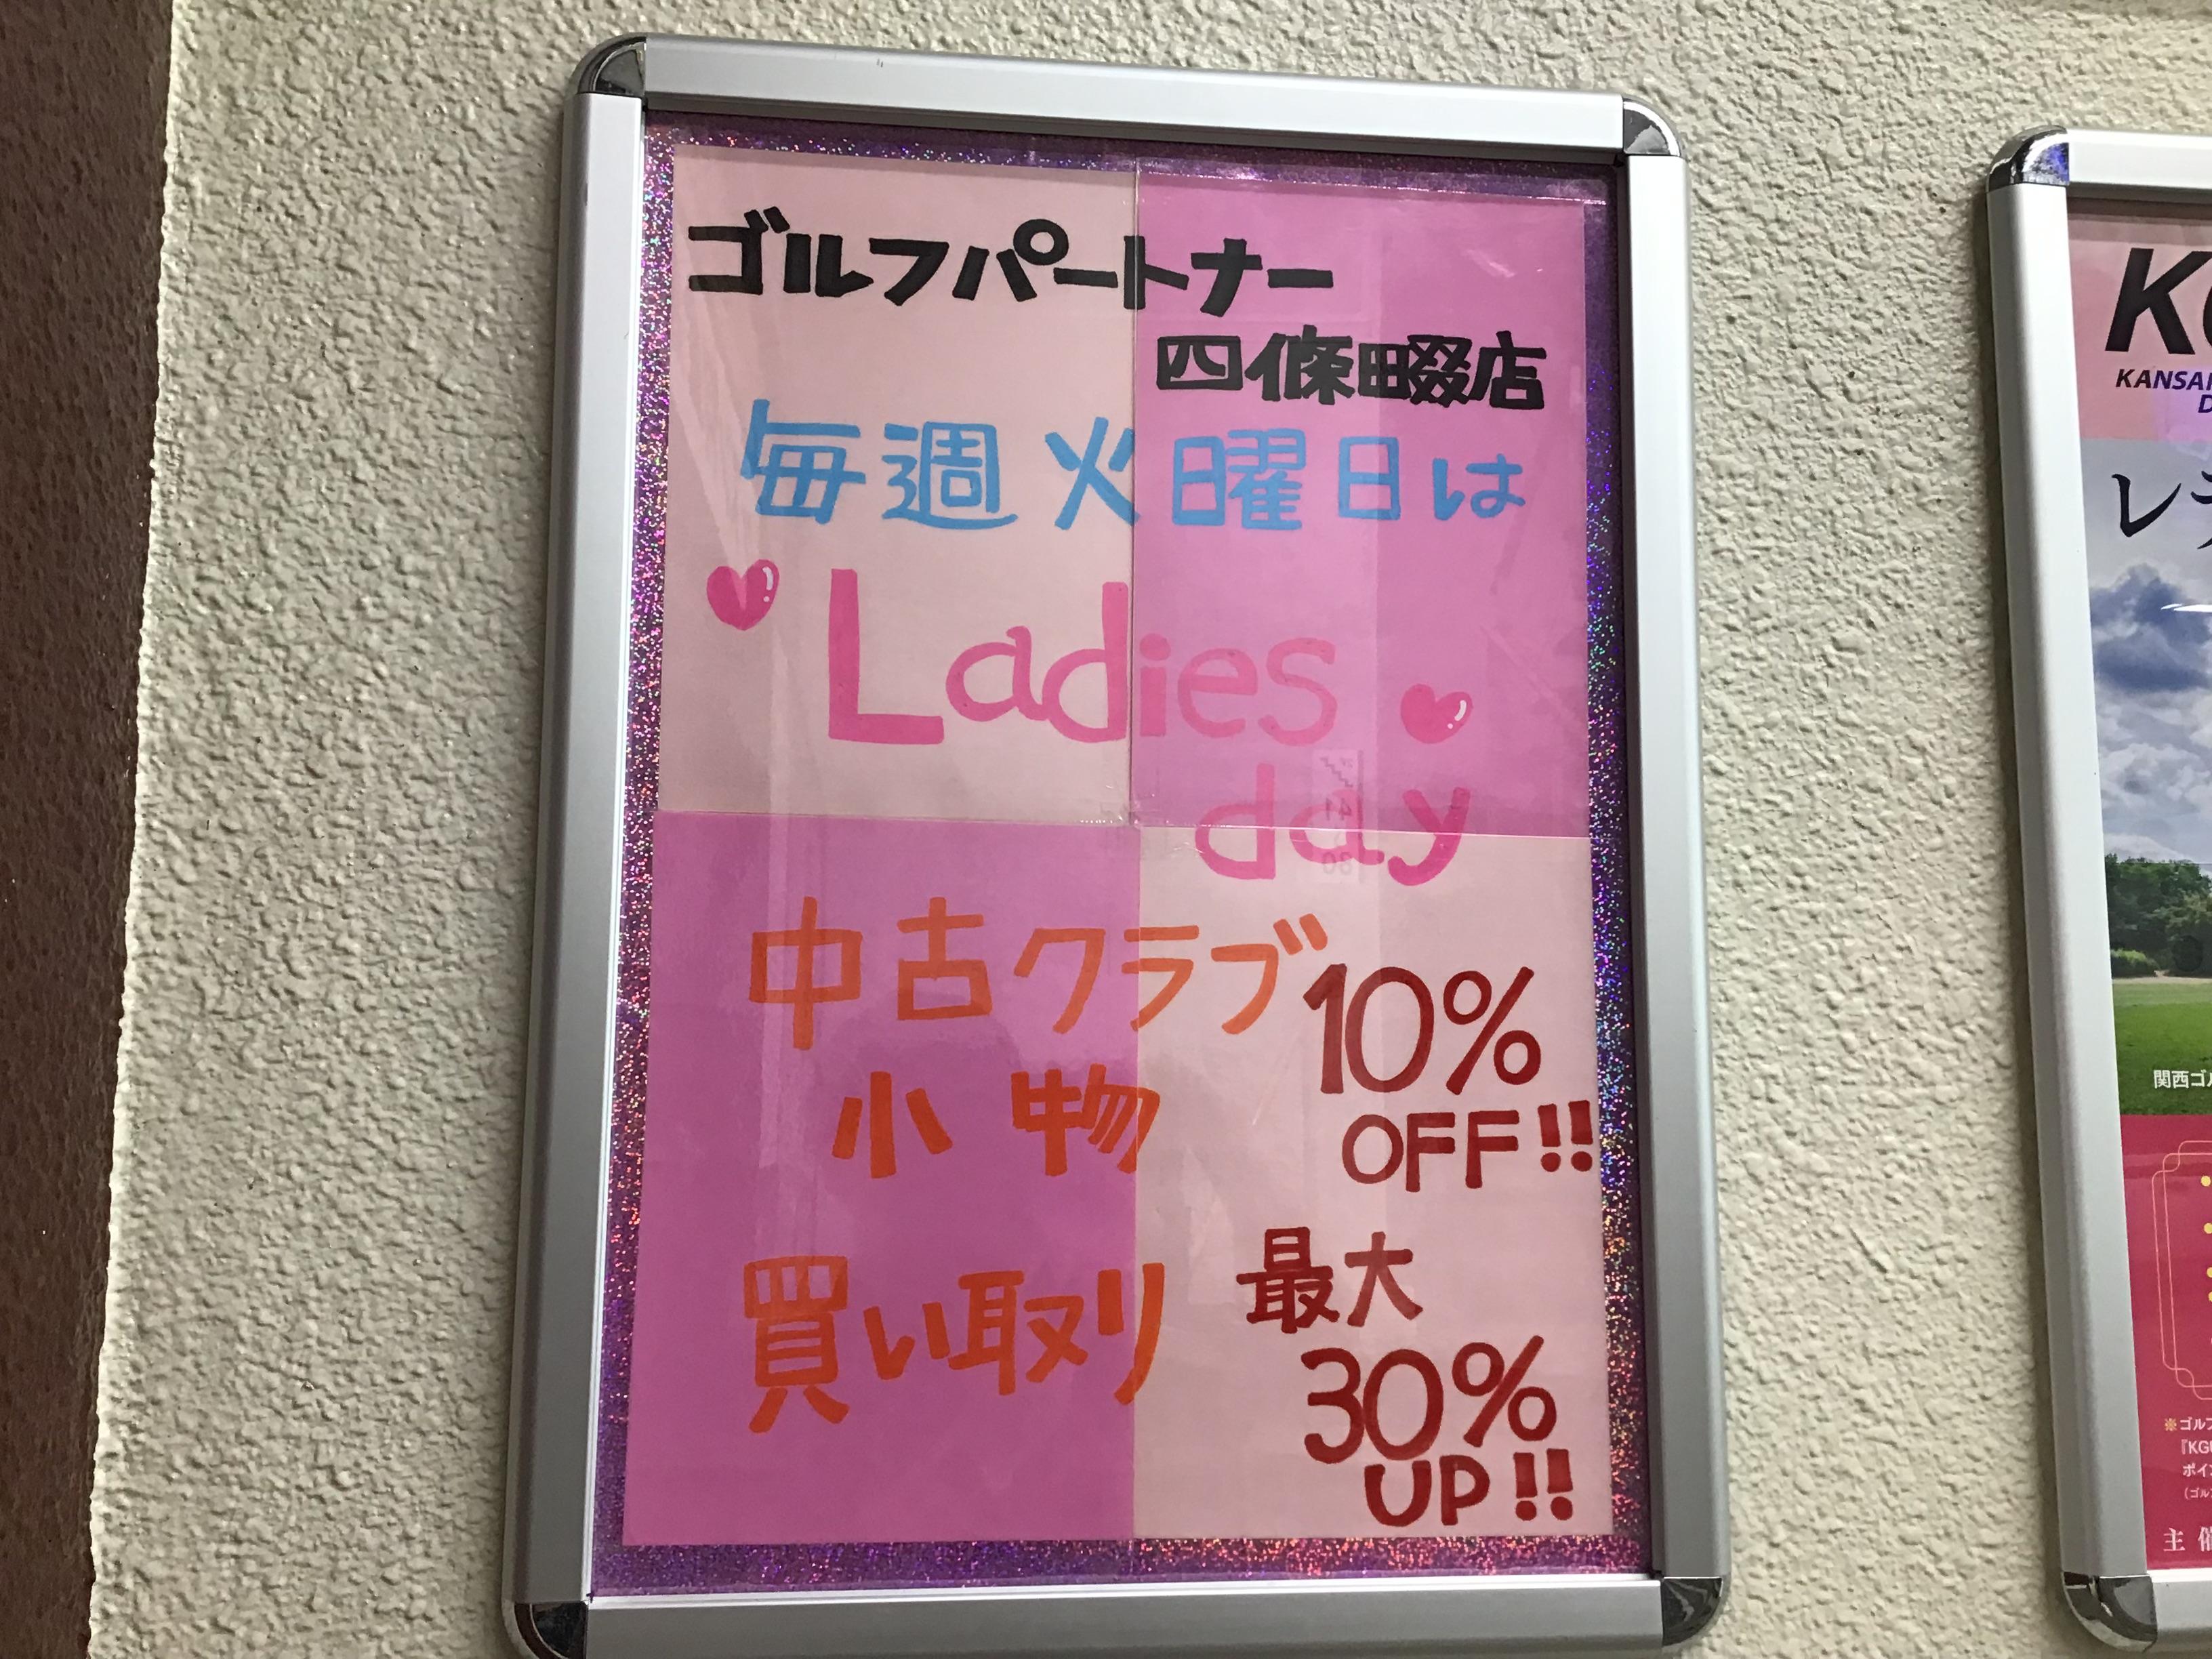 ゴルフパートナー
四條畷店
毎週火曜日は
Ladies
day
中古クラブ
小物
10%
OFF!!
買い取り
最大
30%
UP!!
KANSAI
レデ
関西ゴル
※ゴルフ
『KGU
ポイン
(ゴル
主催